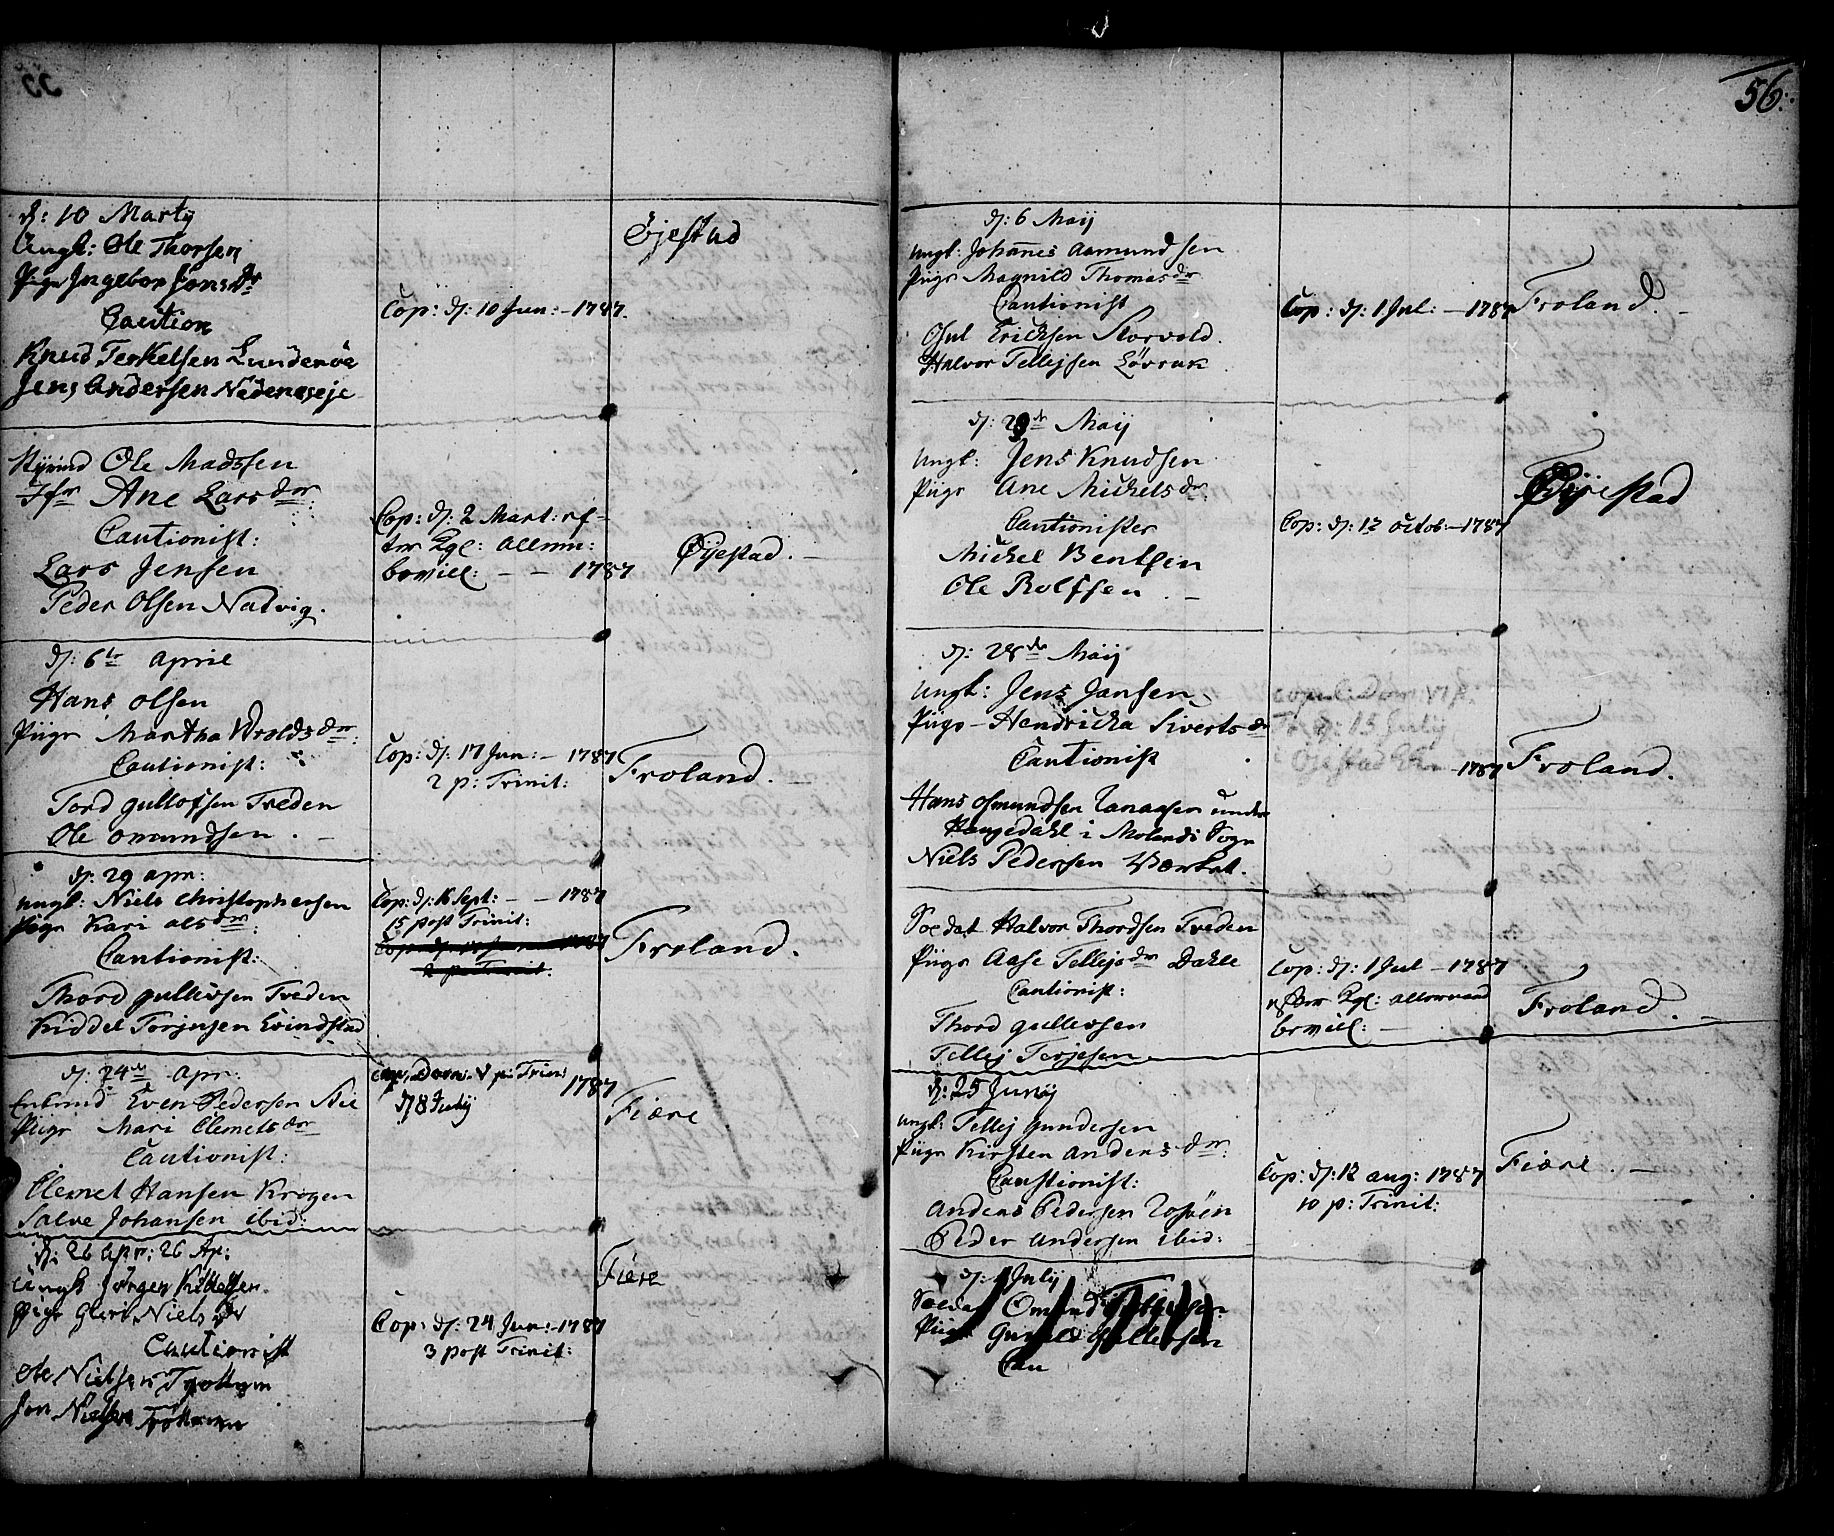 56.
d: 10 Martij
Ungk: Ole Thorsen
Pige Ingebor Jonsdr
Caution
Knud Terkelsen Lundenöe
Jens Andersen Nedeneseje
Cop: d: 10 Jun: - 1787.
Öjestad
Ole Madssen
Jfr Ane Larsdr
Cautionist:
Lars Jensen
Peder Olsen Natvig.
Cop: d: 2 Mart: ef-
ter Kgl: Allern:
bevill: - - 1787
Øjestad. -
d: 6te April
Hans Olsen
Piige Martha Wroldsdr:
Cautionist:
Tord Gullofsen Treden
Ole Omundsen. -
Cop: d: 17 Jun: - 1787
2 p: Trinit:
Froland. -
d: 29 apr:
Ungk: Niels Christophersen
Piige Kari Alsdr:
Cautionist:
Thord Gullevsen Treden
Kiddel Torjusen Evindstad
Cop: d: 16 Sept: - - 1787
15 post Trinit:
Froland.
d: 24de Apr:
Enkmd Even Pedersen
Piige Mari Clemetsdr
Cautionist:
Clemet Hansen Krogen
Salve Johansen ibid:
Cop: Dom. V p: Trin:
d 8 July 1787
Fiære
d: 26 Apr: 26 Ap:
Ungk Jörgen Kittelsen.
Pige Nielsdr
Cautionist
Ole Nielsen
Jon Nielsen
Cop: d: 24 Jun: - 1787
3 post Trinit:
Fiere
d: 6 Maij
Ungk: Johannes Aamundsen
Piige Magnild Thomasdr
Cautionist
Ericksen Storvold.
Halvor Tellefsen Lövrak
Cop: d: 1 Jul: - 1787
Froland. -
d: 29de Maij
Ungk: Jens Knudsen
Piige Ane Michelsdr.
Cautionister
Michel Bentsen
Ole Rolfsen. -
Cop: d: 12 Octob: - 1787
Øijestad
d: 28de Maij
Ungk: Jens Jansen
Piige - Hendricka Sivertsdr
Cautionist
Hans Osmundsen under
Haugedahl i Molands Sogn
Niels Pedersen Værket.
copul: Dom: VI p:
Tr: d: 15 Julij
Öjestad
- 1787
Froland.
Soldat Halvor Thordsen Treden
Piige Aase Tellefsdr Dahle
Cautionist:
Thord Gullevsen
Tellef Terjesen
Cop: d: 1 Jul - 1787
efter Kgl: allernaad
bevill: -
Froland.
d: 25 Junij
Ungk: Tellef Gundersen
Piige Kirsten Andersdr:
Cautionist:
Anders Pedersen
Peder Andersen ibid:
Cop: d: 12 aug: 1787
10 p: Trinit:
Fiære. -
d: July
Soldat Omund
Piige
Cau